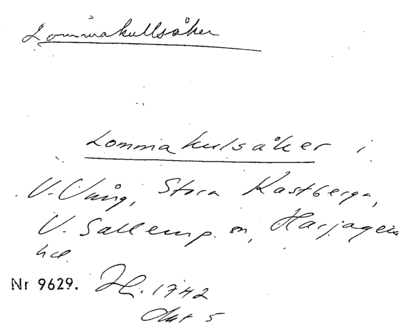 Lommakullsåker
Lommakulsåker i
V. Vång, Stora Kastberga,
V. Sallerup sn, Harjagers
hd.
Nr 9629. H. 1742
Akt 5